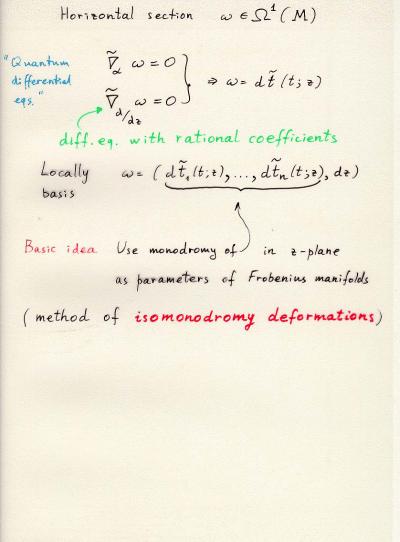 Horizontal section ω ∈ Ω¹(M)
"Quantum differential eqs."
∇̃_α ω = 0
∇̃_{d/dz} ω = 0 } ⇒ ω = d t̃(t; z)
diff. eq. with rational coefficients
Locally basis ω = (d t̃₁(t; z), ..., d t̃ₙ(t; z), dz)
Basic idea Use monodromy of in z-plane
as parameters of Frobenius manifolds
(method of isomonodromy deformations)